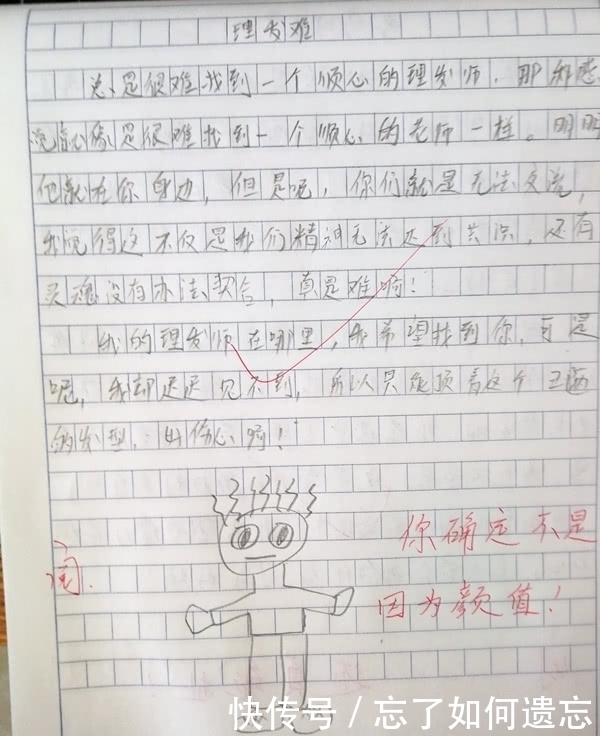 理发难
总是很难找到一个顺心的理发师，那种感
觉就像是很难找到一个顺心的老师一样。明明
他就在你身边，但是呢，你们就是无法交流，
我觉得这不仅是我们精神无法达到共识，还有
灵魂没有办法契合，真是难啊！
我的理发师在哪里，我希望找到你，可是
呢，我却迟迟见不到，所以只能顶着这个丑陋
的发型，好伤心啊！
你确定不是
阅.
因为颜值！
快传号/忘了如何遗忘